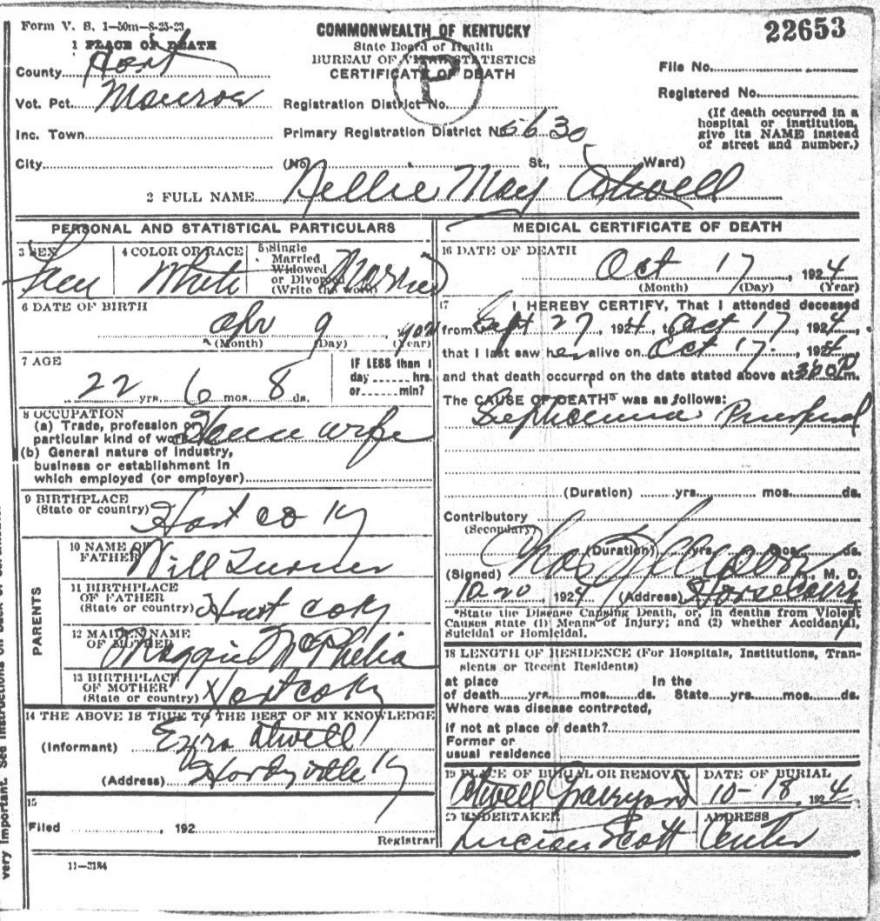 Form V. S. 1—50m—8-25-23
COMMONWEALTH OF KENTUCKY
State Board of Health
BUREAU OF VITAL STATISTICS
CERTIFICATE OF DEATH
22653
1 PLACE OF DEATH
County Hart
Vot. Pct. Monroe
Inc. Town
City
Registration District No.
Primary Registration District No. 5630
(No. St., Ward)
P
File No.
Registered No.
(If death occurred in a
hospital or institution,
give its NAME instead
of street and number.)
2 FULL NAME Nellie May Atwell
PERSONAL AND STATISTICAL PARTICULARS
3 SEX
Fem
4 COLOR OR RACE
White
5 Single
Married
Widowed
or Divorced
(Write the word)
Married
6 DATE OF BIRTH
Apr 9 1902
(Month) (Day) (Year)
7 AGE
22 yrs. 6 mos. 8 ds.
IF LESS than 1
day hrs.
or min?
8 OCCUPATION
(a) Trade, profession or
particular kind of work House wife
(b) General nature of industry,
business or establishment in
which employed (or employer)
9 BIRTHPLACE
(State or country) Hart co Ky
PARENTS
10 NAME OF
FATHER Will Turner
11 BIRTHPLACE
OF FATHER
(State or country) Hart co Ky
12 MAIDEN NAME
OF MOTHER Maggie McPhelia
13 BIRTHPLACE
OF MOTHER
(State or country) Hart co Ky
14 THE ABOVE IS TRUE TO THE BEST OF MY KNOWLEDGE
(Informant) Ezra Atwell
(Address) Hardyville Ky
15
Filed , 192
Registrar
11—3184
very important. See instructions on back of
MEDICAL CERTIFICATE OF DEATH
16 DATE OF DEATH
Oct 17, 1924
(Month) (Day) (Year)
17 I HEREBY CERTIFY, That I attended deceased
from Sept 27, 1924, to Oct 17, 1924,
that I last saw her alive on Oct 17, 1924,
and that death occurred on the date stated above at P m.
The CAUSE OF DEATH* was as follows:
(Duration) yrs. mos. ds.
Contributory
(Secondary)
(Duration) yrs. mos. ds.
(Signed) M. D.
10 20, 1924 (Address) Horse Cave Ky
*State the Disease Causing Death, or, in deaths from Violent
Causes state (1) Means of Injury; and (2) whether Accidental,
Suicidal or Homicidal.
18 LENGTH OF RESIDENCE (For Hospitals, Institutions, Tran-
sients or Recent Residents)
at place In the
of death yrs. mos. ds. State yrs. mos. ds.
Where was disease contracted,
if not at place of death?
Former or
usual residence
19 PLACE OF BURIAL OR REMOVAL
Atwell Graveyard
DATE OF BURIAL
10-18, 1924
20 UNDERTAKER
Lucian Scott
ADDRESS
Center